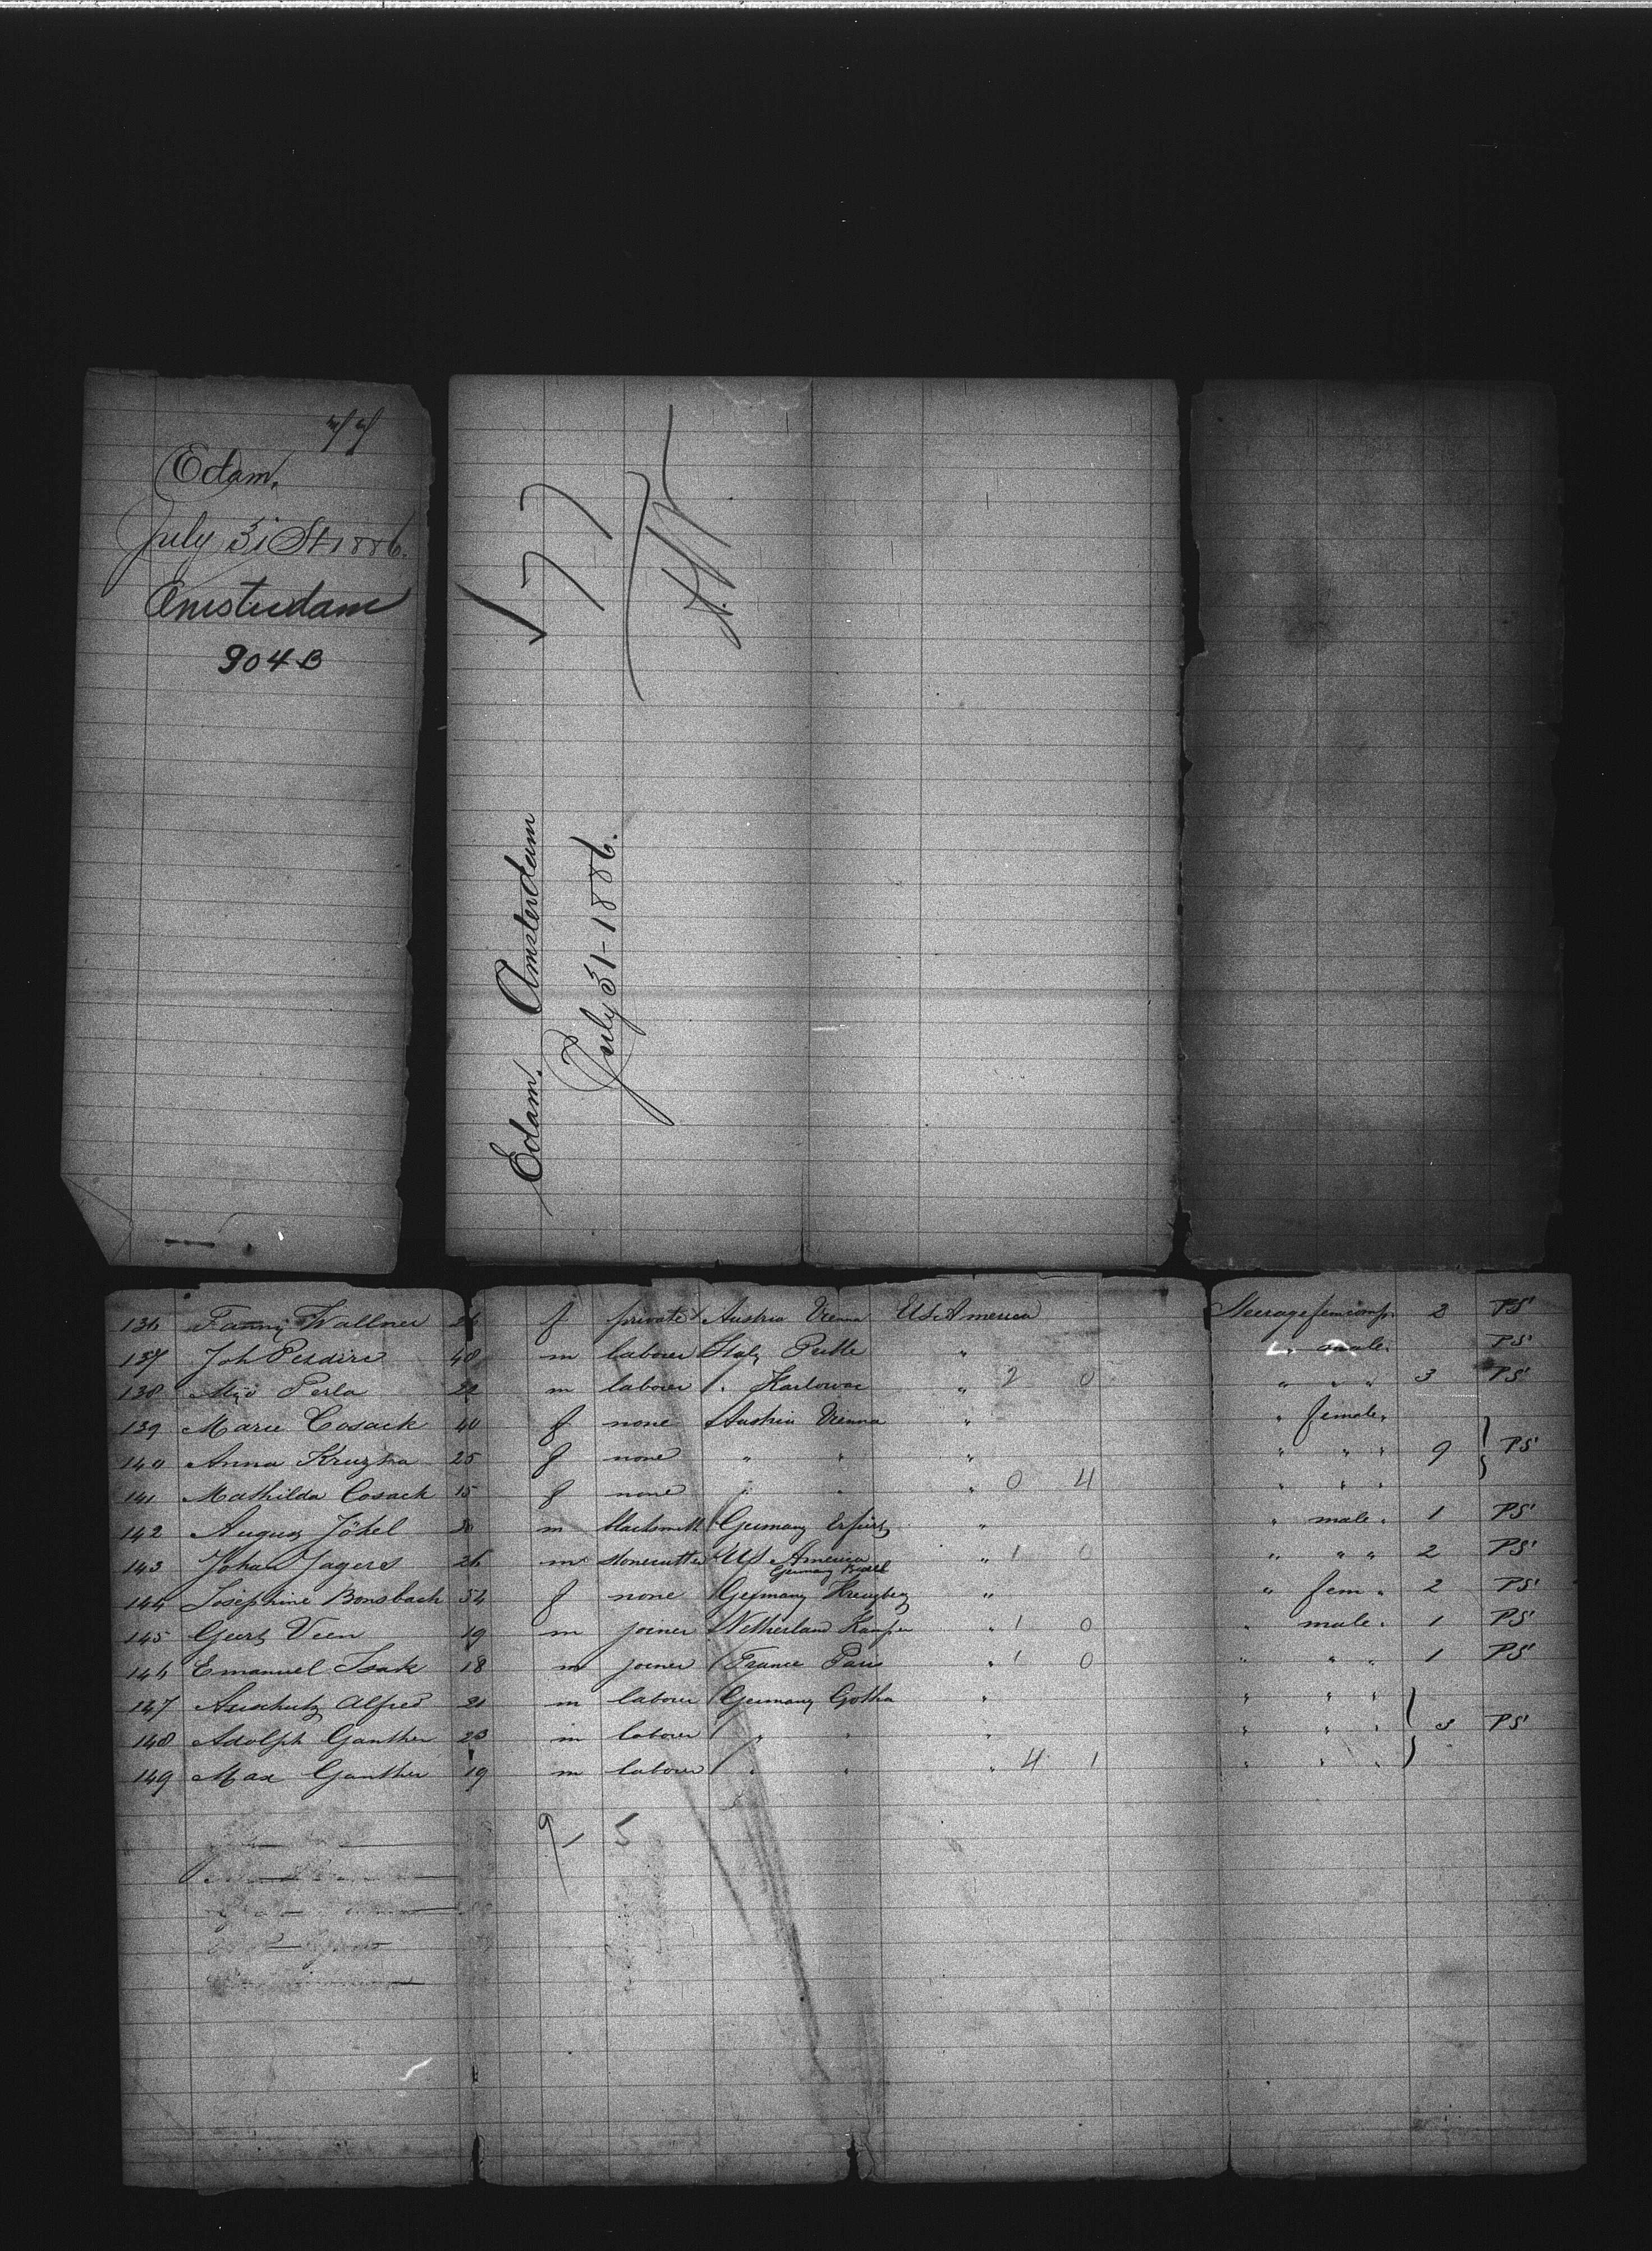 Edam.
July 31 St 1886.
Amsterdam
904 B
177
Edam. Amsterdam
July 31-1886.
136 Fanny Wallner 26 f private Austria Vienna U St America Steerage fem comp. 2 PS
137 Joh m laborer Italy " " male " PS
138 Perla 22 m laborer " Karlowac " 2 0 " " " 3 PS
139 Marie Cosack 40 f none Austria Vienna " " female "
140 Anna 25 f none " " " " " " 9 PS
141 Mathilda Cosack 15 f none " " " 0 4 " " "
142 August Jökel m blacksmith Germany Erfurt " " male " 1 PS
143 Johan Jagers 26 m stonecutter US America " 1 0 " " " 2 PS
Germany
144 Josephine Bonsbach 54 f none Germany Kreuzberg " " fem " 2 PS
145 Geert Veen 19 m joiner Netherland Kampen " 1 0 " male " 1 PS
146 Emanuel Isak 18 m joiner France Paris " 1 0 " " " 1 PS
147 Alfred 21 m laborer Germany Gotha " " " "
148 Adolph Ganther 23 m laborer " " " " " " 3 PS
149 Max Ganther 19 m laborer " " " 4 1 " " "
9 / 5